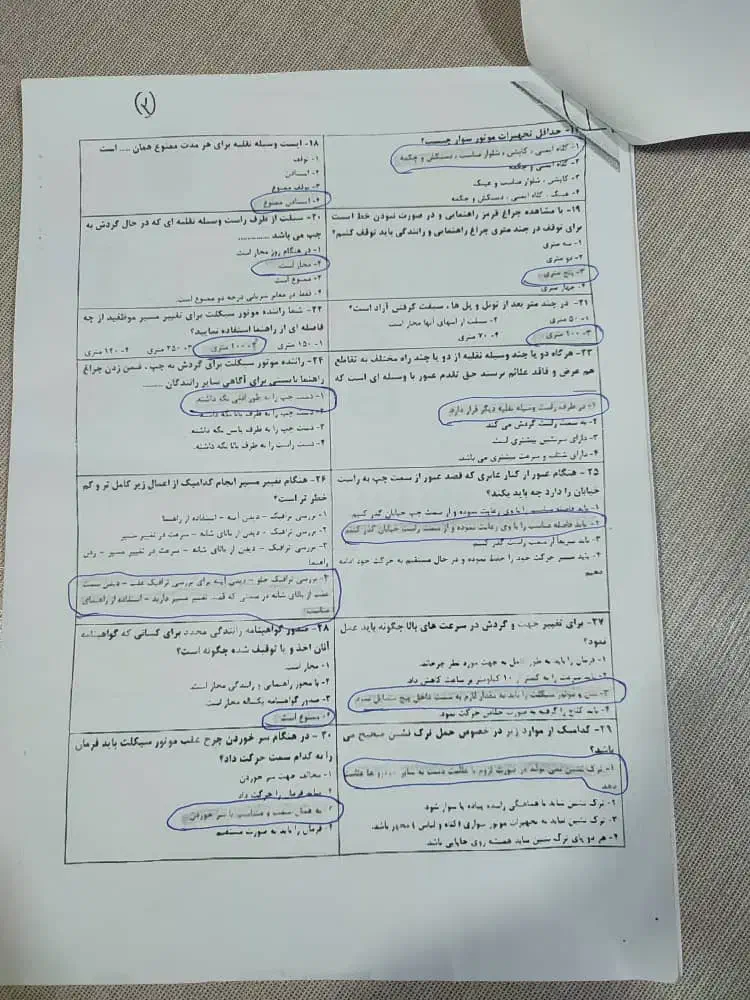 ۲
۱۷- حداقل تجهیزات موتور سوار چیست؟
۱- کلاه ایمنی ، کاپشن ، شلوار مناسب ، دستکش و چکمه
۲- کلاه ایمنی و چکمه
۳- کاپشن ، شلوار مناسب و عینک
۴- عینک ، کلاه ایمنی ، دستکش و چکمه
۱۸- ایست وسیله نقلیه برای هر مدت ممنوع همان .... است
۱- توقف
۲- ایستادن
۳- توقف ممنوع
۴- ایستادن ممنوع
۱۹- با مشاهده چراغ قرمز راهنمایی و در صورت نبودن خط ایست
برای توقف در چند متری چراغ راهنمایی و رانندگی باید توقف کنیم؟
۱- سه متری
۲- دو متری
۳- پنج متری
۴- چهار متری
۲۰- سبقت از طرف راست وسیله نقلیه ای که در حال گردش به
چپ می باشد ............
۱- در هنگام روز مجاز است
۲- مجاز است
۳- ممنوع است
۴- فقط در معابر شریانی درجه دو ممنوع است.
۲۱- در چند متر بعد از تونل و پل ها ، سبقت گرفتن آزاد است؟
۱- ۵۰ متری
۲- سبقت از اسبهای آنها مجاز است
۳- ۱۰۰ متری
۴- ۷۰ متری
۲۲- شما راننده موتور سیکلت برای تغییر مسیر موظفید از چه
فاصله ای از راهنما استفاده نمایید؟
۱- ۱۵۰ متری ۲- ۱۰۰ متری ۳- ۲۵۰ متری ۴- ۱۲۰ متری
۲۳- هرگاه دو یا چند وسیله نقلیه از دو یا چند راه مختلف به تقاطع
هم عرض و فاقد علائم برسند حق تقدم عبور با وسیله ای است که
۱- در طرف راست وسیله نقلیه دیگر قرار دارد.
۲- به سمت راست گردش می کند
۳- دارای سرنشین بیشتری است
۴- دارای شتاب و سرعت بیشتری می باشد.
۲۴- راننده موتور سیکلت برای گردش به چپ، ضمن زدن چراغ
راهنما بایستی برای آگاهی سایر رانندگان .......
۱- دست چپ را به طور افقی نگه داشته.
۲- دست چپ را به طرف بالا نگه داشته.
۳- دست چپ را به طرف پایین نگه داشته.
۴- دست راست را به طرف بالا نگه داشته.
۲۵- هنگام عبور از کنار عابری که قصد عبور از سمت چپ به راست
خیابان را دارد چه باید بکند؟
۱- باید فاصله مناسب را با وی رعایت نموده و از سمت چپ خیابان گذر کنیم
۲- باید فاصله مناسب را با وی رعایت نموده و از سمت راست خیابان گذر کنیم
۳- باید سریعا از سمت راست گذر کنیم
۴- باید مسیر حرکت خود را حفظ نموده و در حال مستقیم به حرکت خود ادامه
دهیم
۲۶- هنگام تغییر مسیر انجام کدامیک از اعمال زیر کامل تر و کم
خطر تر است؟
۱- بررسی ترافیک - دیدن آینه - استفاده از راهنما
۲- بررسی ترافیک - دیدن از بالای شانه - سرعت در تغییر مسیر
۳- بررسی ترافیک - دیدن از بالای شانه - سرعت در تغییر مسیر - زدن
راهنما
۴- بررسی ترافیک جلو - دیدن آینه برای بررسی ترافیک عقب - دیدن سمت
عقب از بالای شانه در سمتی که قصد تغییر مسیر دارید - استفاده از راهنمای
مناسب
۲۷- برای تغییر جهت و گردش در سرعت های بالا چگونه باید عمل
نمود؟
۱- فرمان را باید به طور کامل به جهت مورد نظر چرخاند.
۲- باید سرعت را به کمتر از ۱۰ کیلومتر بر ساعت کاهش داد.
۳- بدن و موتور سیکلت را باید به مقدار لازم به سمت داخل پیچ متمایل نمود
۴- باید کلاج را گرفته به صورت خلاص حرکت نمود
۲۸- صدور گواهینامه رانندگی مجدد برای کسانی که گواهینامه
آنان اخذ و یا توقیف شده چگونه است؟
۱- مجاز است.
۲- با مجوز راهنمایی و رانندگی مجاز است.
۳- صدور گواهینامه یکساله مجاز است.
۴- ممنوع است
۲۹- کدامیک از موارد زیر در خصوص حمل ترک نشین صحیح می
باشد؟
۱- ترک نشین می تواند در صورت لزوم با علامت دست به سایر خودرو ها علامت
دهد
۲- ترک نشین نباید با هماهنگی راننده پیاده یا سوار شود
۳- ترک نشین نباید به تجهیزات موتور سواری (کلاه و لباس) مجهز باشد.
۴- هر دو پای ترک نشین نباید همیشه روی جاپایی باشد
۳۰- در هنگام سر خوردن چرخ عقب موتور سیکلت باید فرمان
را به کدام سمت حرکت داد؟
۱- مخالف جهت سر خوردن
۲- نباید فرمان را حرکت داد
۳- به همان سمت و متناسب با سر خوردن
۴- فرمان را باید به صورت مستقیم